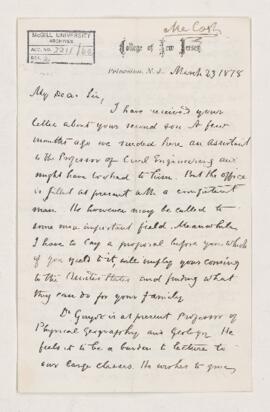 McCosh
McGILL UNIVERSITY
ARCHIVES
ACC. NO. 2211/
REF.
College of New Jersey
Princeton, N.J. March 23 1878
My Dear Sir,
I have received your
letter about your second son. A few
months ago we needed here an assistant
to the Professor of Civil Engineering and
might have looked to him. But the office
is filled at present with a competent
man. He however may be called to
some more important field. Meanwhile
I have to lay a proposal before you which
if you yield to it will imply your coming
to the United States and finding what
they can do for your family
Dr Guyot is at present Professor of
Physical Geography and Geology. He
feels it to be a burden to lecture to
our large classes. He wishes to give